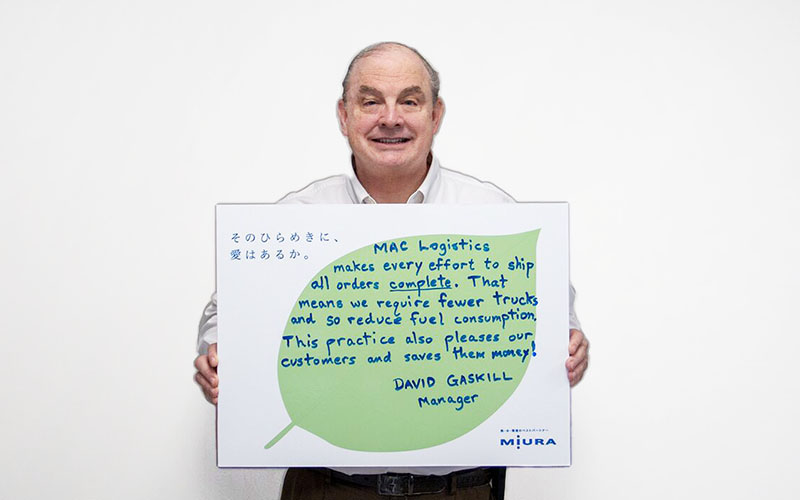 そのひらめきに、
愛はあるか。
MAC Logistics
makes every effort to ship
all orders complete. That
means we require fewer trucks
and so reduce fuel consumption.
This practice also pleases our
customers and saves them money!
DAVID GASKILL
Manager
熱・水・環境のベストパートナー
MIURA